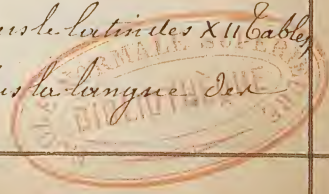 ns le latin des XII Tables,
ns la langue des
ÉCOLE NORMALE SUPÉRIEURE
BIBLIOTHÈQUE